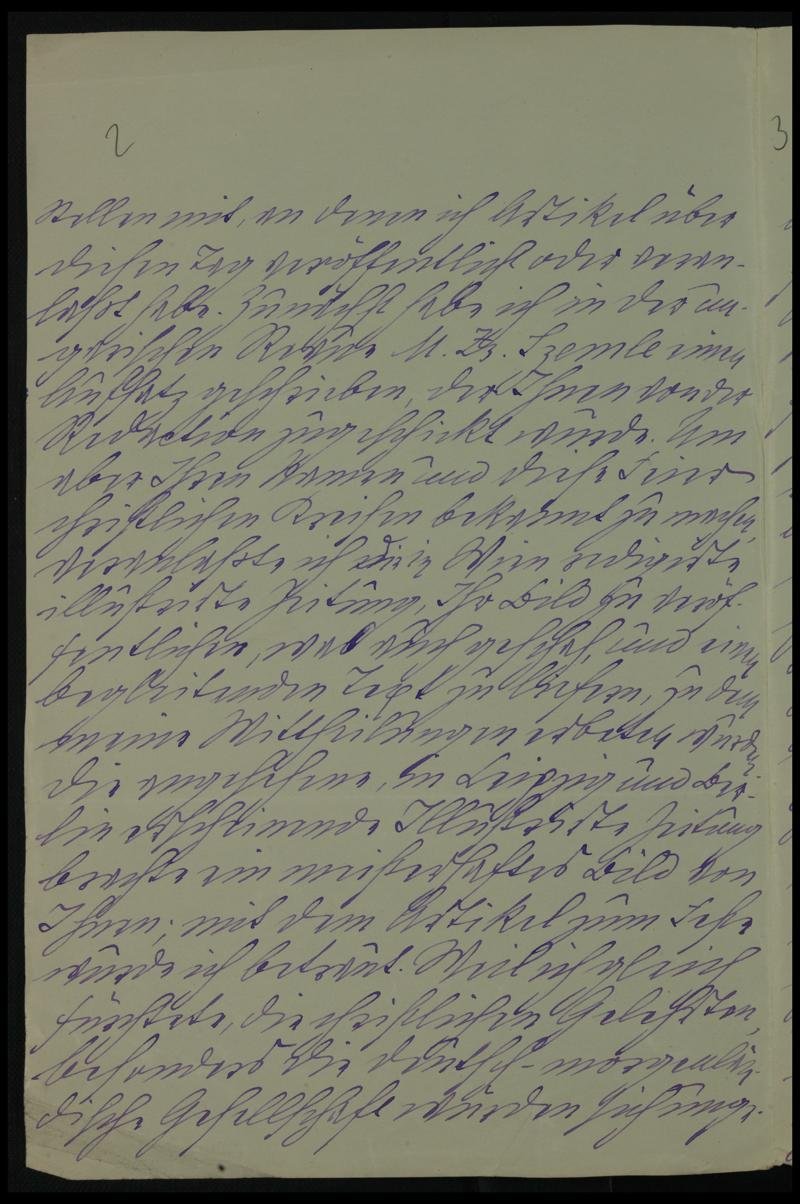 2
3
Stellen mit, an denen ich Artikel über
diesen Tag veröffentlicht oder veran-
laßt habe. Zunächst habe ich in der un-
garischen Revue M. Zs. Szemle einen
Aufsatz geschrieben, der Ihnen von der
Redaction zugeschickt wurde. Um
aber Ihren Namen und diese Feier
christlichen Kreisen bekannt zu machen,
veranlaßte ich die in Wien redigirte
illustrirte Zeitung, Ihr Bild zu veröf-
fentlichen, was auch geschah, und einen
begleitenden Text zu liefern, zu dem
meine Mittheilungen erbeten wurden.
Die angesehene, in Leipzig und Ber-
lin erscheinende Illustrirte Zeitung
brachte ein meisterhaftes Bild von
Ihnen; mit dem Artikel zum Feste
wurde ich betraut. Weil ich gleich
fürchtete, die christlichen Gelehrten,
besonders die deutsch-morgenlän-
dische Gesellschaft würden sich unge-